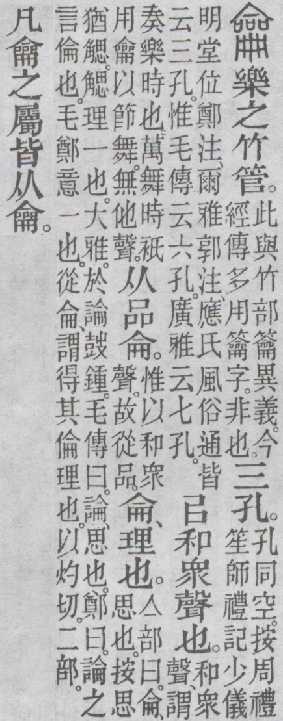 龠樂之竹管。此與竹部籥異義。今經傳多用籥字。非也。三孔。孔同空。按周禮笙師禮記少儀
明堂位鄭注、爾雅郭注、應氏風俗通皆云三孔。惟毛傳云六孔。廣雅云七孔。㠯和眾聲也。和眾聲謂
奏樂時也。萬舞時衹用龠以節舞。無佗聲。从品侖。惟以和眾聲。故從品。侖、理也。亼部曰。侖、思也。按思
猶䚡。䚡理一也。大雅。於論鼓鍾。毛傳曰。論、思也。鄭曰。論之言倫也。毛鄭意一也。從侖、謂得其倫理也。以灼切。二部。
凡龠之屬皆从龠。